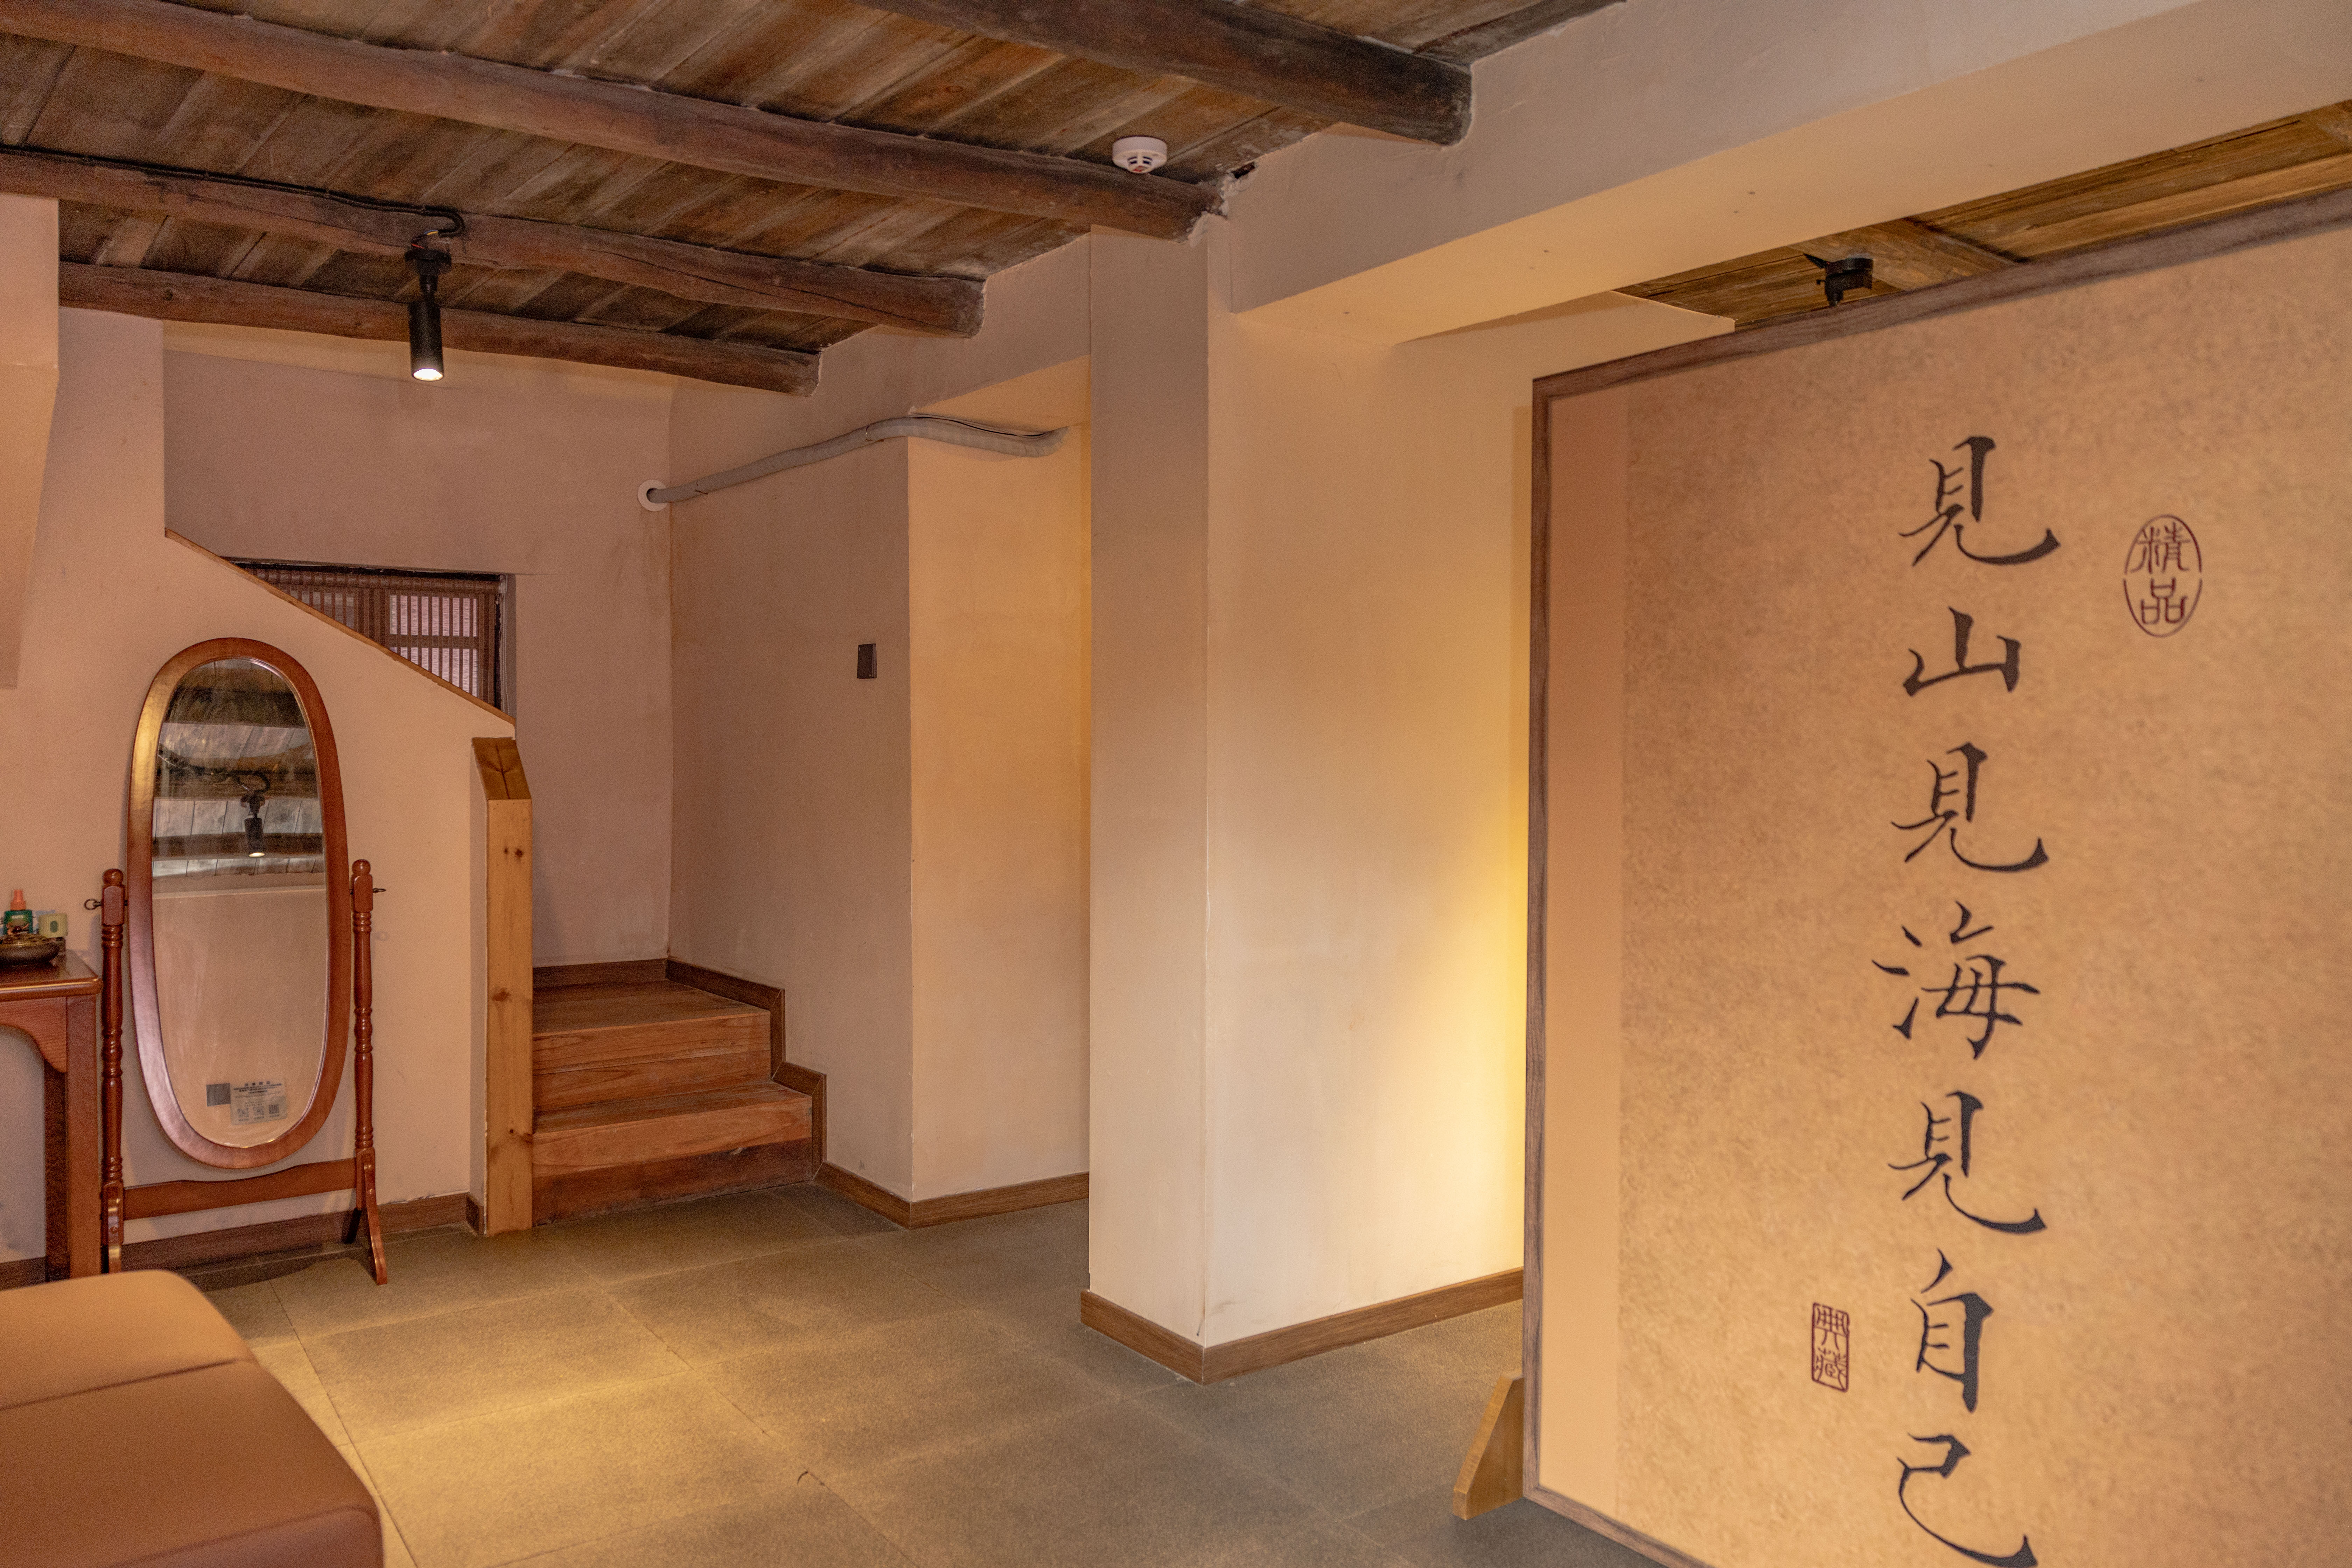 精品
見山見海見自己
典藏